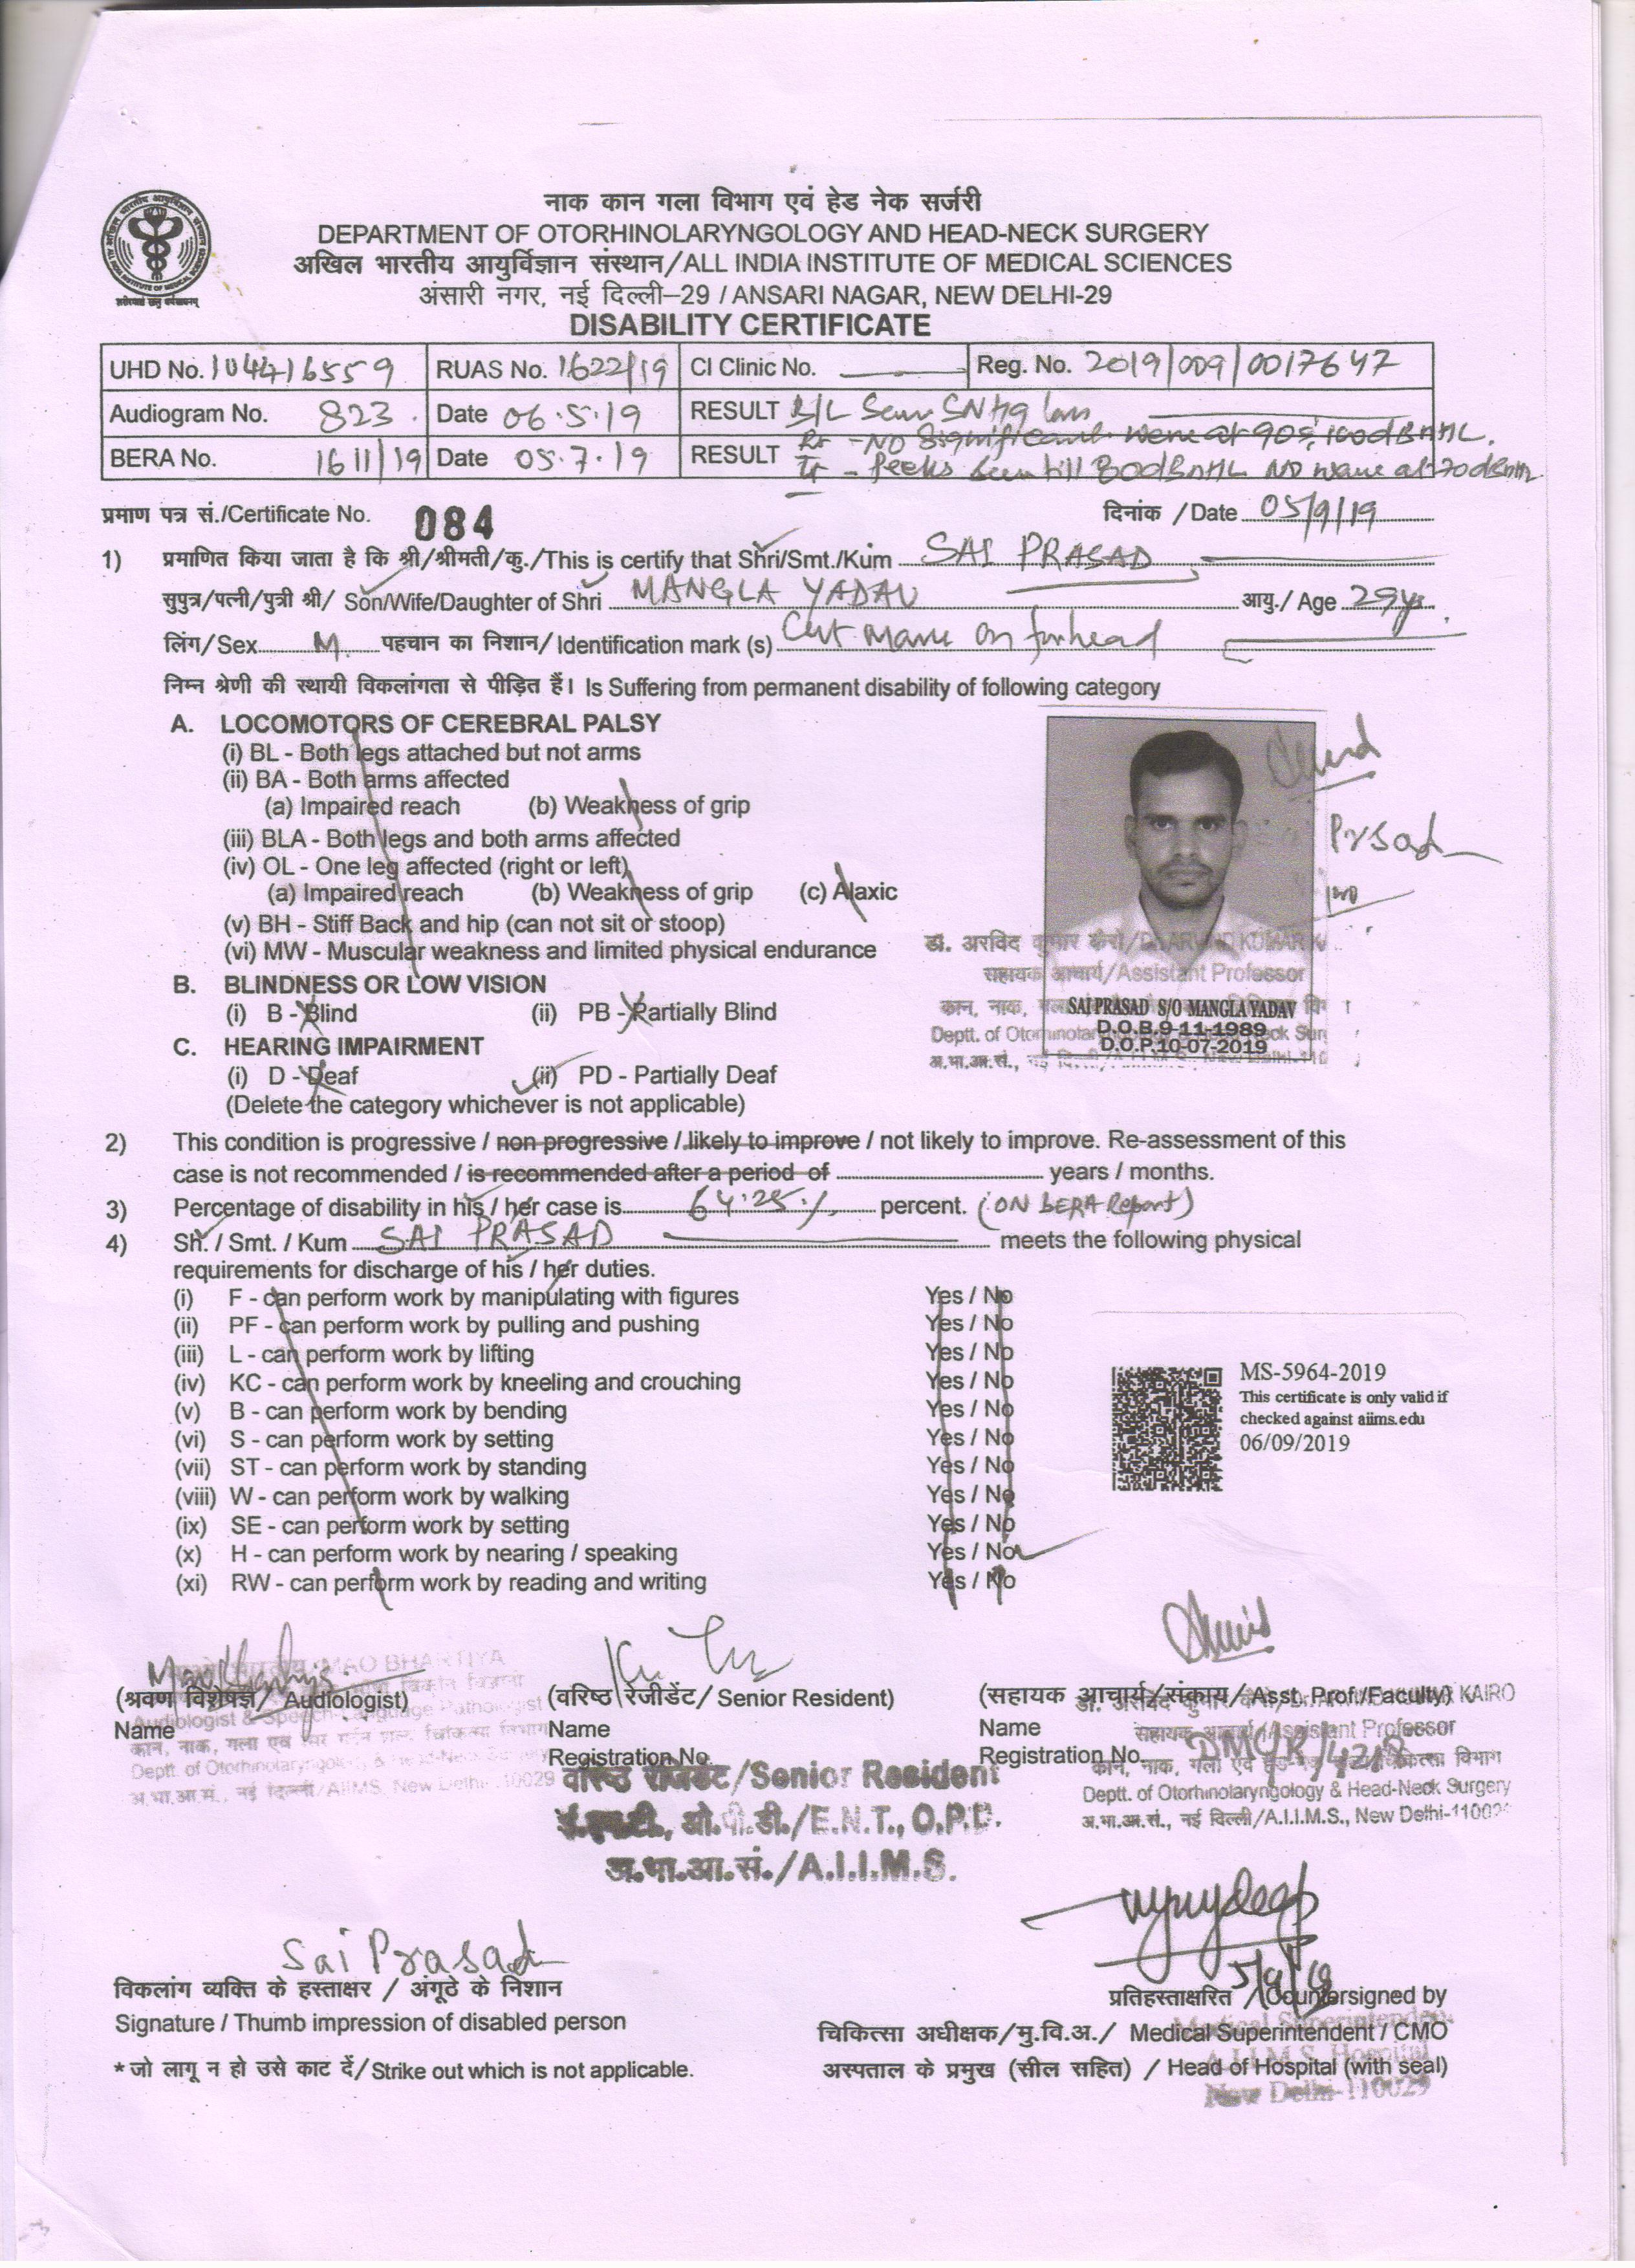 नाक कान गला विभाग एवं हेड नेक सर्जरी
DEPARTMENT OF OTORHINOLARYNGOLOGY AND HEAD-NECK SURGERY
अखिल भारतीय आयुर्विज्ञान संस्थान/ALL INDIA INSTITUTE OF MEDICAL SCIENCES
अंसारी नगर, नई दिल्ली–29 / ANSARI NAGAR, NEW DELHI-29
DISABILITY CERTIFICATE
UHD No. 104416559 RUAS No. 1622/19 CI Clinic No. Reg. No. 2019/009/0017647
Audiogram No. 823 Date 06.5.19 RESULT B/L SNHg loss
BERA No. 1611/19 Date 05.7.19 RESULT Rt - NO Significant wave at 90 & 100dBNHL.
Peeks Seen till 80dBNHL NO wave at 70dBNHL
प्रमाण पत्र सं./Certificate No. 084 दिनांक /Date 05/9/19
1) प्रमाणित किया जाता है कि श्री/श्रीमती/कु./This is certify that Shri/Smt./Kum SAI PRASAD
सुपुत्र/पत्नी/पुत्री श्री/ Son/Wife/Daughter of Shri MANGLA YADAV आयु./ Age 29yr.
लिंग/Sex M. पहचान का निशान/ Identification mark (s) Cut Mark on forhead
निम्न श्रेणी की स्थायी विकलांगता से पीड़ित हैं। Is Suffering from permanent disability of following category
A. LOCOMOTORS OF CEREBRAL PALSY
(i) BL - Both legs attached but not arms
(ii) BA - Both arms affected
(a) Impaired reach (b) Weakness of grip
(iii) BLA - Both legs and both arms affected
(iv) OL - One leg affected (right or left)
(a) Impaired reach (b) Weakness of grip (c) Alaxic
(v) BH - Stiff Back and hip (can not sit or stoop)
(vi) MW - Muscular weakness and limited physical endurance
B. BLINDNESS OR LOW VISION
(i) B - Blind (ii) PB - Partially Blind
C. HEARING IMPAIRMENT
(i) D - Deaf (ii) PD - Partially Deaf
(Delete the category whichever is not applicable)
Prsad
डा. अरविंद कुमार कैरो/Dr. ARVIND KUMAR
सहायक आचार्य/Assistant Professor
कान, नाक,
SAI PRASAD S/O MANGLA YADAV
Deptt. of
D.O.B.9-11-1989
D.O.P.10-07-2019
अ.भा.आ.सं., नई
2) This condition is progressive / non progressive / likely to improve / not likely to improve. Re-assessment of this
case is not recommended / is recommended after a period of years / months.
3) Percentage of disability in his / her case is 64.25% percent. (ON BERA Report)
4) Sh. / Smt. / Kum SAI PRASAD meets the following physical
requirements for discharge of his / her duties.
(i) F - can perform work by manipulating with figures Yes / No
(ii) PF - can perform work by pulling and pushing Yes / No
(iii) L - can perform work by lifting Yes / No
(iv) KC - can perform work by kneeling and crouching Yes / No
(v) B - can perform work by bending Yes / No
(vi) S - can perform work by setting Yes / No
(vii) ST - can perform work by standing Yes / No
(viii) W - can perform work by walking Yes / No
(ix) SE - can perform work by setting Yes / No
(x) H - can perform work by nearing / speaking Yes / No
(xi) RW - can perform work by reading and writing Yes / No
MS-5964-2019
This certificate is only valid if
checked against aiims.edu
06/09/2019
MAO BHARTIYA
(श्रवण विशेषज्ञ/ Audiologist) (वरिष्ठ रेजीडेंट/ Senior Resident) (सहायक आचार्य/संकाय/ Asst. Prof./Faculty)
Name Name Name
Registration No. Registration No.
Audiologist & Speech-Language Pathologist
Deptt. of Otorhinolaryngology & Head-Neck Surgery
अ.भा.आ.सं., नई दिल्ली/AIIMS, New Delhi-110029
वरिष्ठ रेजिडेंट/Senior Resident
ई.एन.टी., ओ.पी.डी./E.N.T., O.P.D.
अ.भा.आ.सं./A.I.I.M.S.
KAIRO
सहायक आचार्य/Assistant Professor
Deptt. of Otorhinolaryngology & Head-Neck Surgery
अ.भा.आ.सं., नई दिल्ली/A.I.I.M.S., New Delhi-11002
Sai Prasad
विकलांग व्यक्ति के हस्ताक्षर / अंगूठे के निशान
Signature / Thumb impression of disabled person
* जो लागू न हो उसे काट दें/ Strike out which is not applicable.
5/9/19
प्रतिहस्ताक्षरित /Countersigned by
चिकित्सा अधीक्षक/मु.वि.अ./ Medical Superintendent / CMO
अस्पताल के प्रमुख (सील सहित) / Head of Hospital (with seal)
Medical Superintendent
A.I.I.M.S. Hospital
New Delhi-110029